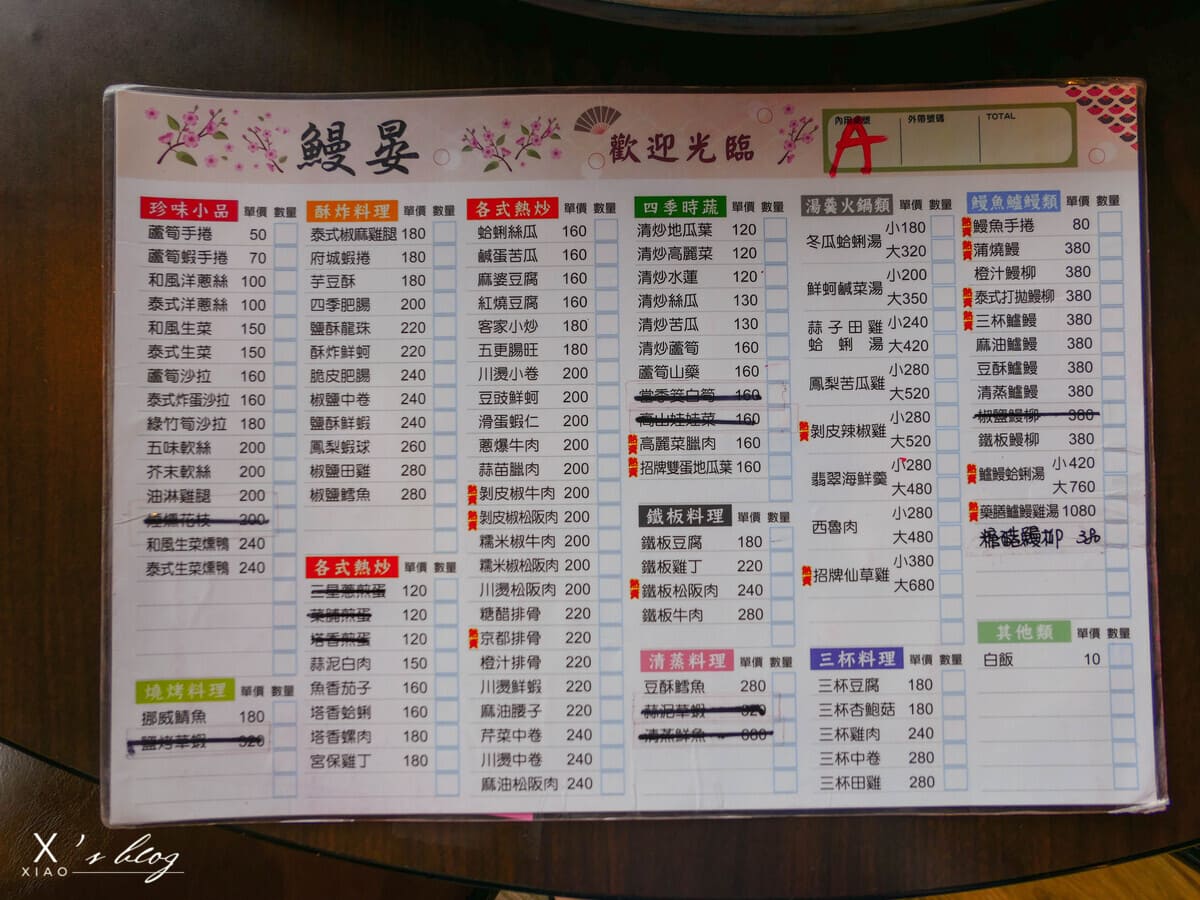 鰻晏
歡迎光臨
A
外帶號碼
TOTAL
珍味小品 單價 數量
蘆筍手捲 50
蘆筍蝦手捲 70
和風洋蔥絲 100
泰式洋蔥絲 100
和風生菜 150
泰式生菜 150
蘆筍沙拉 160
泰式炸蛋沙拉 160
綠竹筍沙拉 180
五味軟絲 200
芥末軟絲 200
油淋雞腿 200
花枝 200
和風生菜燻鴨 240
泰式生菜燻鴨 240
燒烤料理 單價 數量
挪威鯖魚 180
鹽烤草蝦 320
酥炸料理 單價 數量
泰式椒麻雞腿 180
府城蝦捲 180
芋豆酥 180
四季肥腸 200
鹽酥龍珠 220
酥炸鮮蚵 220
脆皮肥腸 240
椒鹽中卷 240
鹽酥鮮蝦 240
鳳梨蝦球 260
椒鹽田雞 280
椒鹽鱈魚 280
各式熱炒 單價 數量
三星蔥煎蛋 120
菜脯煎蛋 120
塔香煎蛋 120
蒜泥白肉 150
魚香茄子 160
塔香蛤蜊 160
塔香螺肉 180
宮保雞丁 180
各式熱炒 單價 數量
蛤蜊絲瓜 160
鹹蛋苦瓜 160
麻婆豆腐 160
紅燒豆腐 160
客家小炒 180
五更腸旺 180
川燙小卷 200
豆豉鮮蚵 200
滑蛋蝦仁 200
蔥爆牛肉 200
蒜苗臘肉 200
熱賣 剝皮椒牛肉 200
熱賣 剝皮椒松阪肉 200
糯米椒牛肉 200
糯米椒松阪肉 200
川燙松阪肉 200
糖醋排骨 220
熱賣 京都排骨 220
橙汁排骨 220
川燙鮮蝦 220
麻油腰子 220
芹菜中卷 240
川燙中卷 240
麻油松阪肉 240
四季時蔬 單價 數量
清炒地瓜葉 120
清炒高麗菜 120
清炒水蓮 120
清炒絲瓜 130
清炒苦瓜 130
清炒蘆筍 160
蘆筍山藥 160
當季筊白筍 160
高山娃娃菜 160
熱賣 高麗菜臘肉 160
熱賣 招牌雙蛋地瓜葉 160
鐵板料理 單價 數量
鐵板豆腐 180
鐵板雞丁 220
熱賣 鐵板松阪肉 240
鐵板牛肉 280
清蒸料理 單價 數量
豆酥鱈魚 280
蒜泥草蝦 320
清蒸鮮魚
湯羹火鍋類 單價 數量
冬瓜蛤蜊湯 小180
大320
鮮蚵鹹菜湯 小200
大350
蒜子田雞 小240
蛤蜊湯 大420
鳳梨苦瓜雞 小280
大520
熱賣 剝皮辣椒雞 小280
大520
翡翠海鮮羹 小280
大480
西魯肉 小280
大480
熱賣 招牌仙草雞 小380
大680
三杯料理 單價 數量
三杯豆腐 180
三杯杏鮑菇 180
三杯雞肉 240
三杯中卷 280
三杯田雞 280
鰻魚鱸鰻類 單價 數量
熱賣 鰻魚手捲 80
熱賣 蒲燒鰻 380
橙汁鰻柳 380
熱賣 泰式打拋鰻柳 380
熱賣 三杯鱸鰻 380
麻油鱸鰻 380
豆酥鱸鰻 380
清蒸鱸鰻 380
椒鹽鰻柳 380
鐵板鰻柳 380
熱賣 鱸鰻蛤蜊湯 小420
大760
熱賣 藥膳鱸鰻雞湯 1080
醋鰻柳 380
其他類 單價 數量
白飯 10
X's blog
XIAO